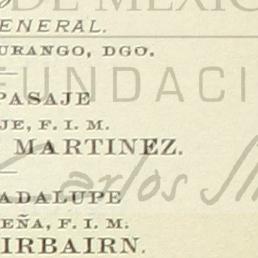 DE MÉXICO
ENERAL.
URANGO, DGO.
FUNDACI
PASAJE
JE, F. I. M.
MARTINEZ.
Carlos Sli
ADALUPE
EÑA, F. I. M.
IRBAIRN.